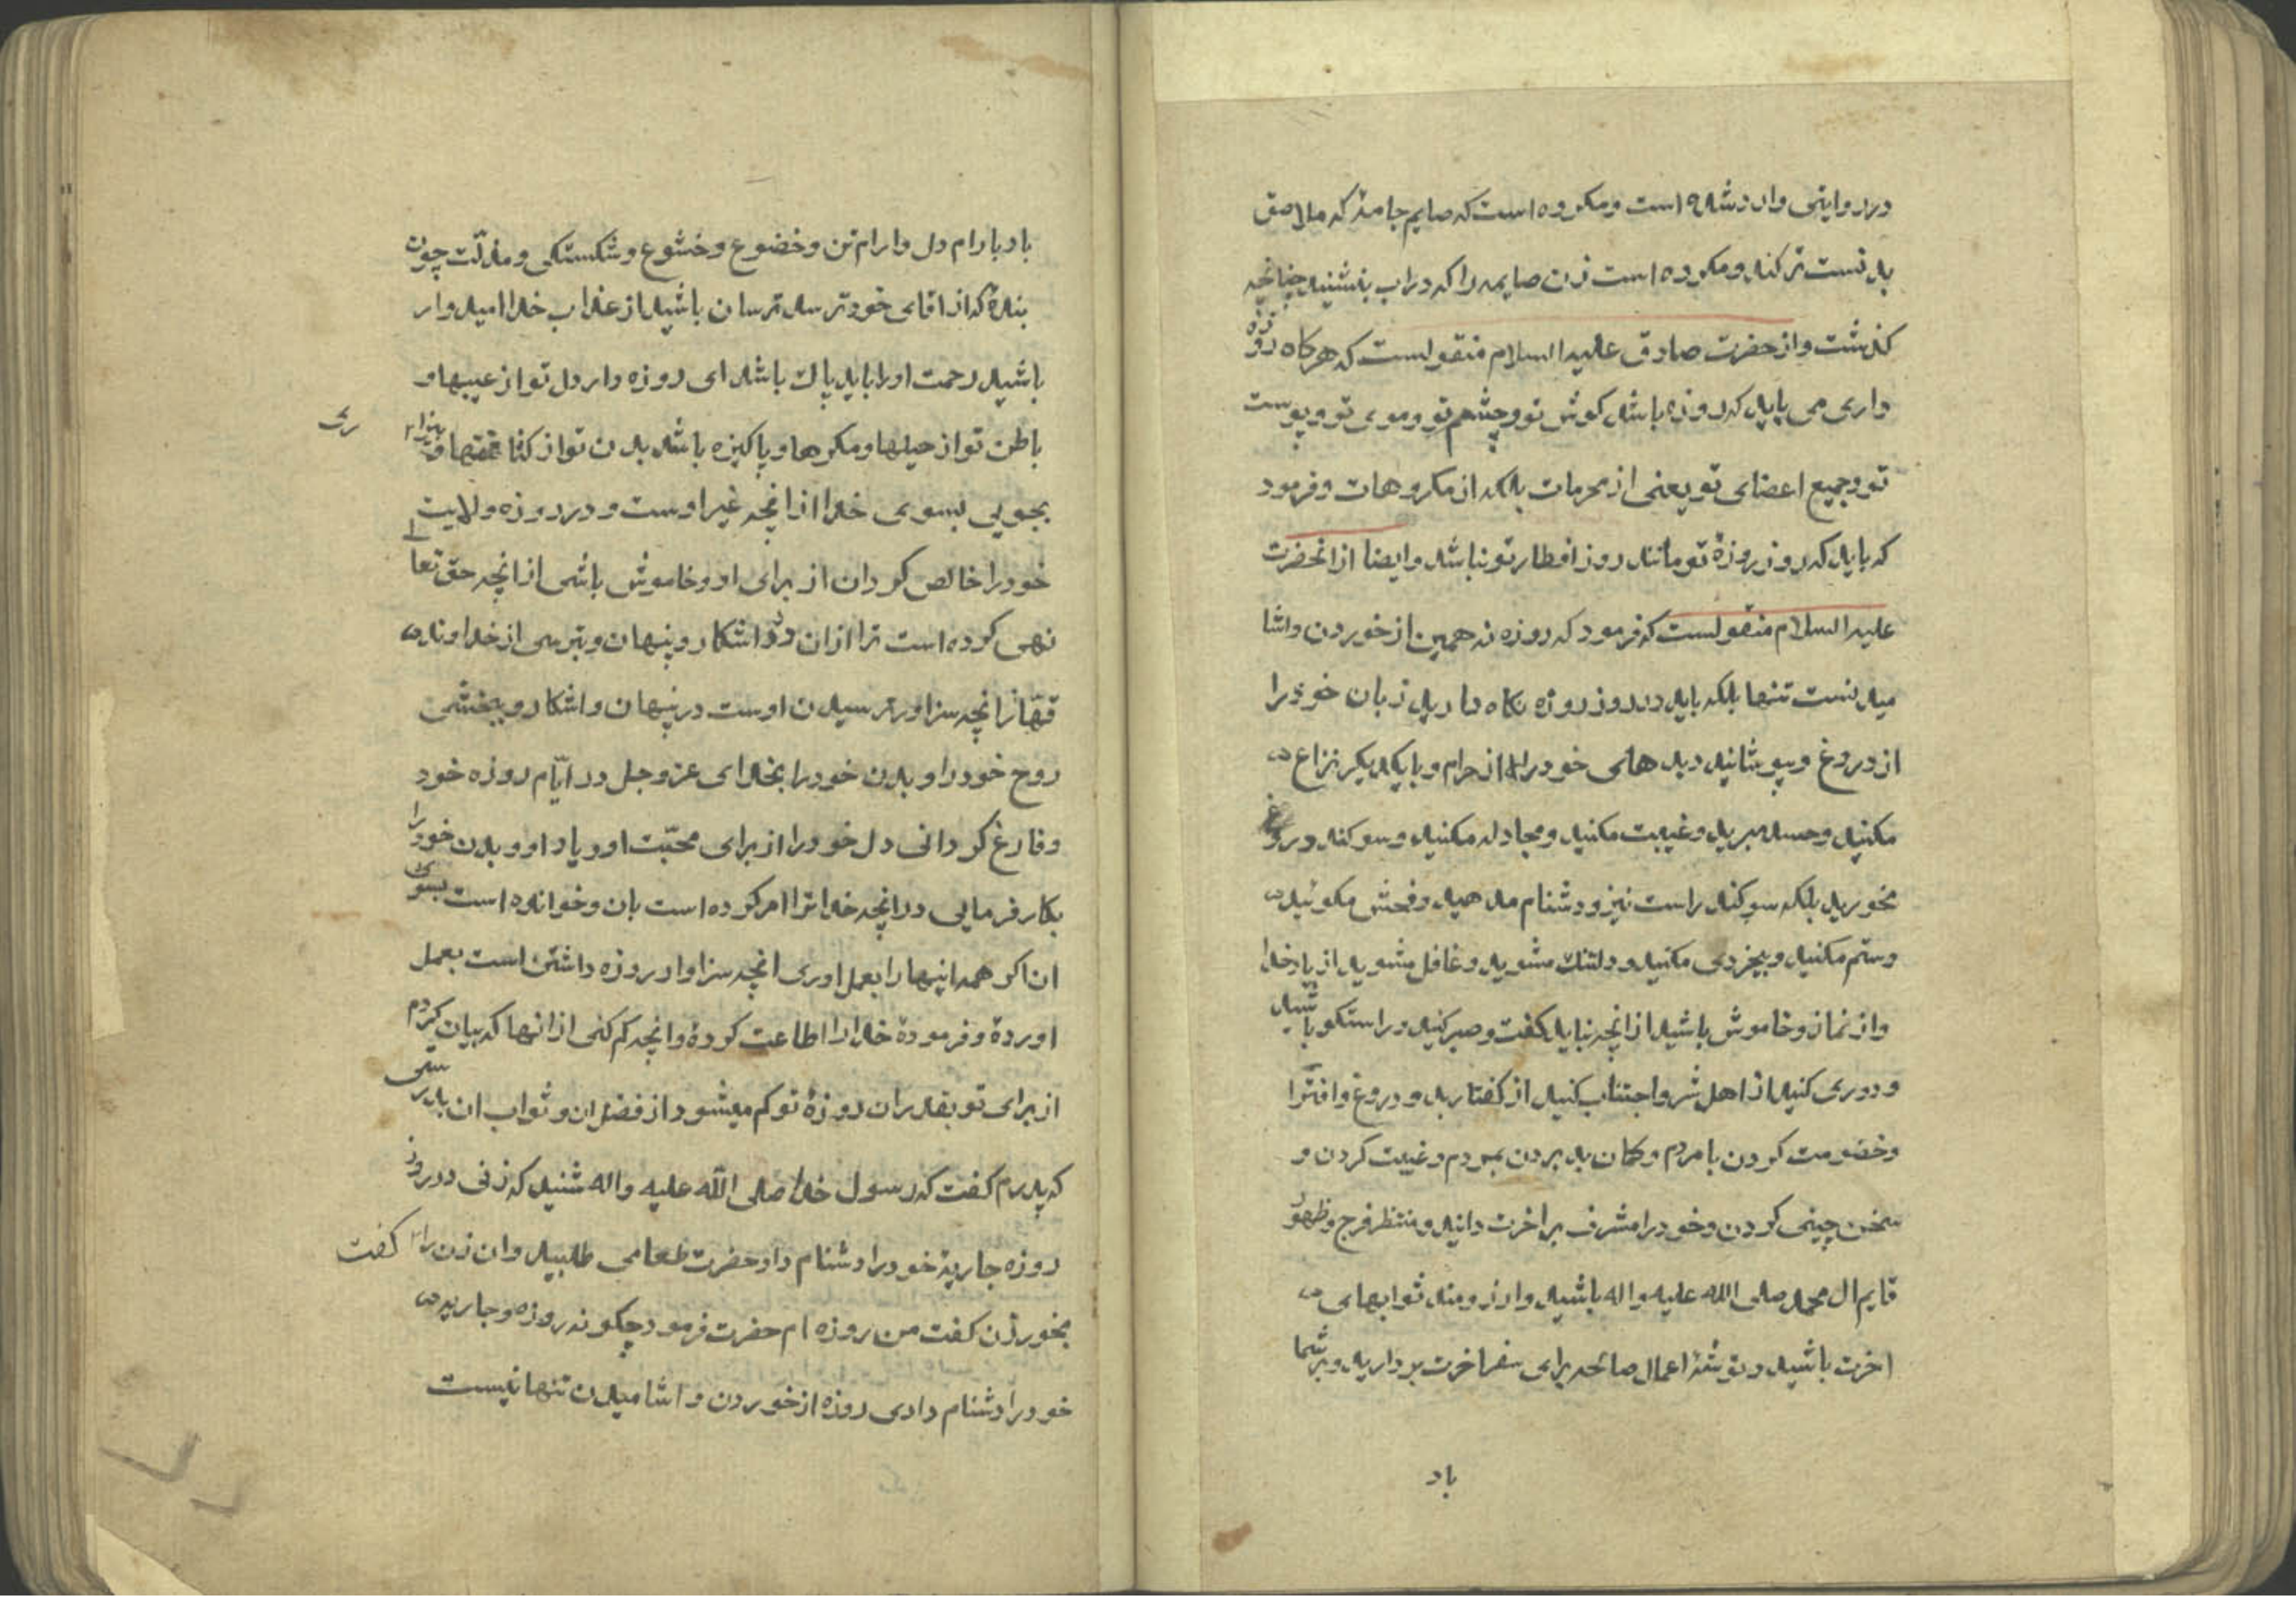 در روایتی وارد شده است و مکروه است که صایم جامهٔ که ملاصق
بدنست تر کند و مکروه است زن صایمه را که در اب بنشیند چنانچه
کذشت و از حضرت صادق علیه السلام منقولست که هرکاه روزه
داری می باید که روزه باشد کوش تو و چشم تو و موی تو و پوست
تو و جمیع اعضای تو یعنی از محرمات بلکه از مکروهات و فرمود
که باید که روز روزهٔ تو مانند روز افطار تو نباشد و ایضا از انحضرت
علیه السلام منقولست که فرمود که روزه نه همین از خوردن و اشا
میدنست تنها بلکه باید در روز روزه نکاه دارید زبان خود را
از دروغ و بپوشانید دیدهای خود را از حرام و با یکدیکر نزاع
مکنید و حسد مبرید و غیبت مکنید و مجادله مکنید و سوکند دروغ
مخورید بلکه سوکند راست نیز و دشنام مدهید و فحش مکوئید
و ستم مکنید و بیخردی مکنید و دلتنك مشوید و غافل مشوید از یاد خدا
و از نماز و خاموش باشید از انچه نباید کفت و صبر کنید و راستکو باشید
و دوری کنید از اهل شر و اجتناب کنید از کفتار بد و دروغ و افترا
و خضومت کردن با مردم و کمان بد بردن بمردم و غیبت کردن و
سخن چینی کردن و خود را مشرف بر اخرت دانید و منتظر فرج و ظهور
قایم ال محمد صلی الله علیه و اله باشید و ارزومند ثوابهای
اخرت باشید و توشهٔ اعمال صالحه برای سفر اخرت بردارید و بر شما
باد
باد بارام دل و ارام تن و خضوع و خشوع و شکستکی و مذلّت چون
بندهٔ که از اقای خود ترسد ترسان باشید از عذاب خدا امیدوار
باشید رحمت او را باید پاك باشد ای روزه دار دل تو از عیبها و
باطن تو از حیلها و مکرها و پاکیزه باشد بدن تو از کثافتها و بیزا
ری
بجویی بسوی خدا از انچه غیر اوست و در روزه ولایت
خود را خالص کردان از برای او و خاموش باشی از انچه حق تعا
نهی کرده است ترا ازان در اشکار و پنهان و بترسی از خداوند
قهّار انچه سزاور ترسیدن اوست در پنهان و اشکار و ببخشی
روح خود را و بدن خود را بخدای عز و جل در ایّام روزه خود
و فارغ کردانی دل خود را از برای محبّت او و یاد او و بدن خود را
بکار فرمایی در انچه خدا ترا امر کرده است بان و خوانده است بسوی
ان اکر همه اینها را بعمل اوری انچه سزاوار روزه داشتن است بعمل
اوردهٔ و فرمودهٔ خدا را اطاعت کردهٔ و انچه کم کنی از انها که بیان کردم
از برای تو بقدر ان روزهٔ تو کم میشود از فضل ان و ثواب ان بدرستی
که پدرم کفت که رسول خدا صلی الله علیه و اله شنید که زنی در روز
روزه جاریهٔ خود را دشنام داد حضرت طعامی طلبید و ان زن را کفت
بخور زن کفت من روزه ام حضرت فرمود چکونه روزه و جاریه
خود را دشنام دادی روزه از خوردن و اشامیدن تنها نیست